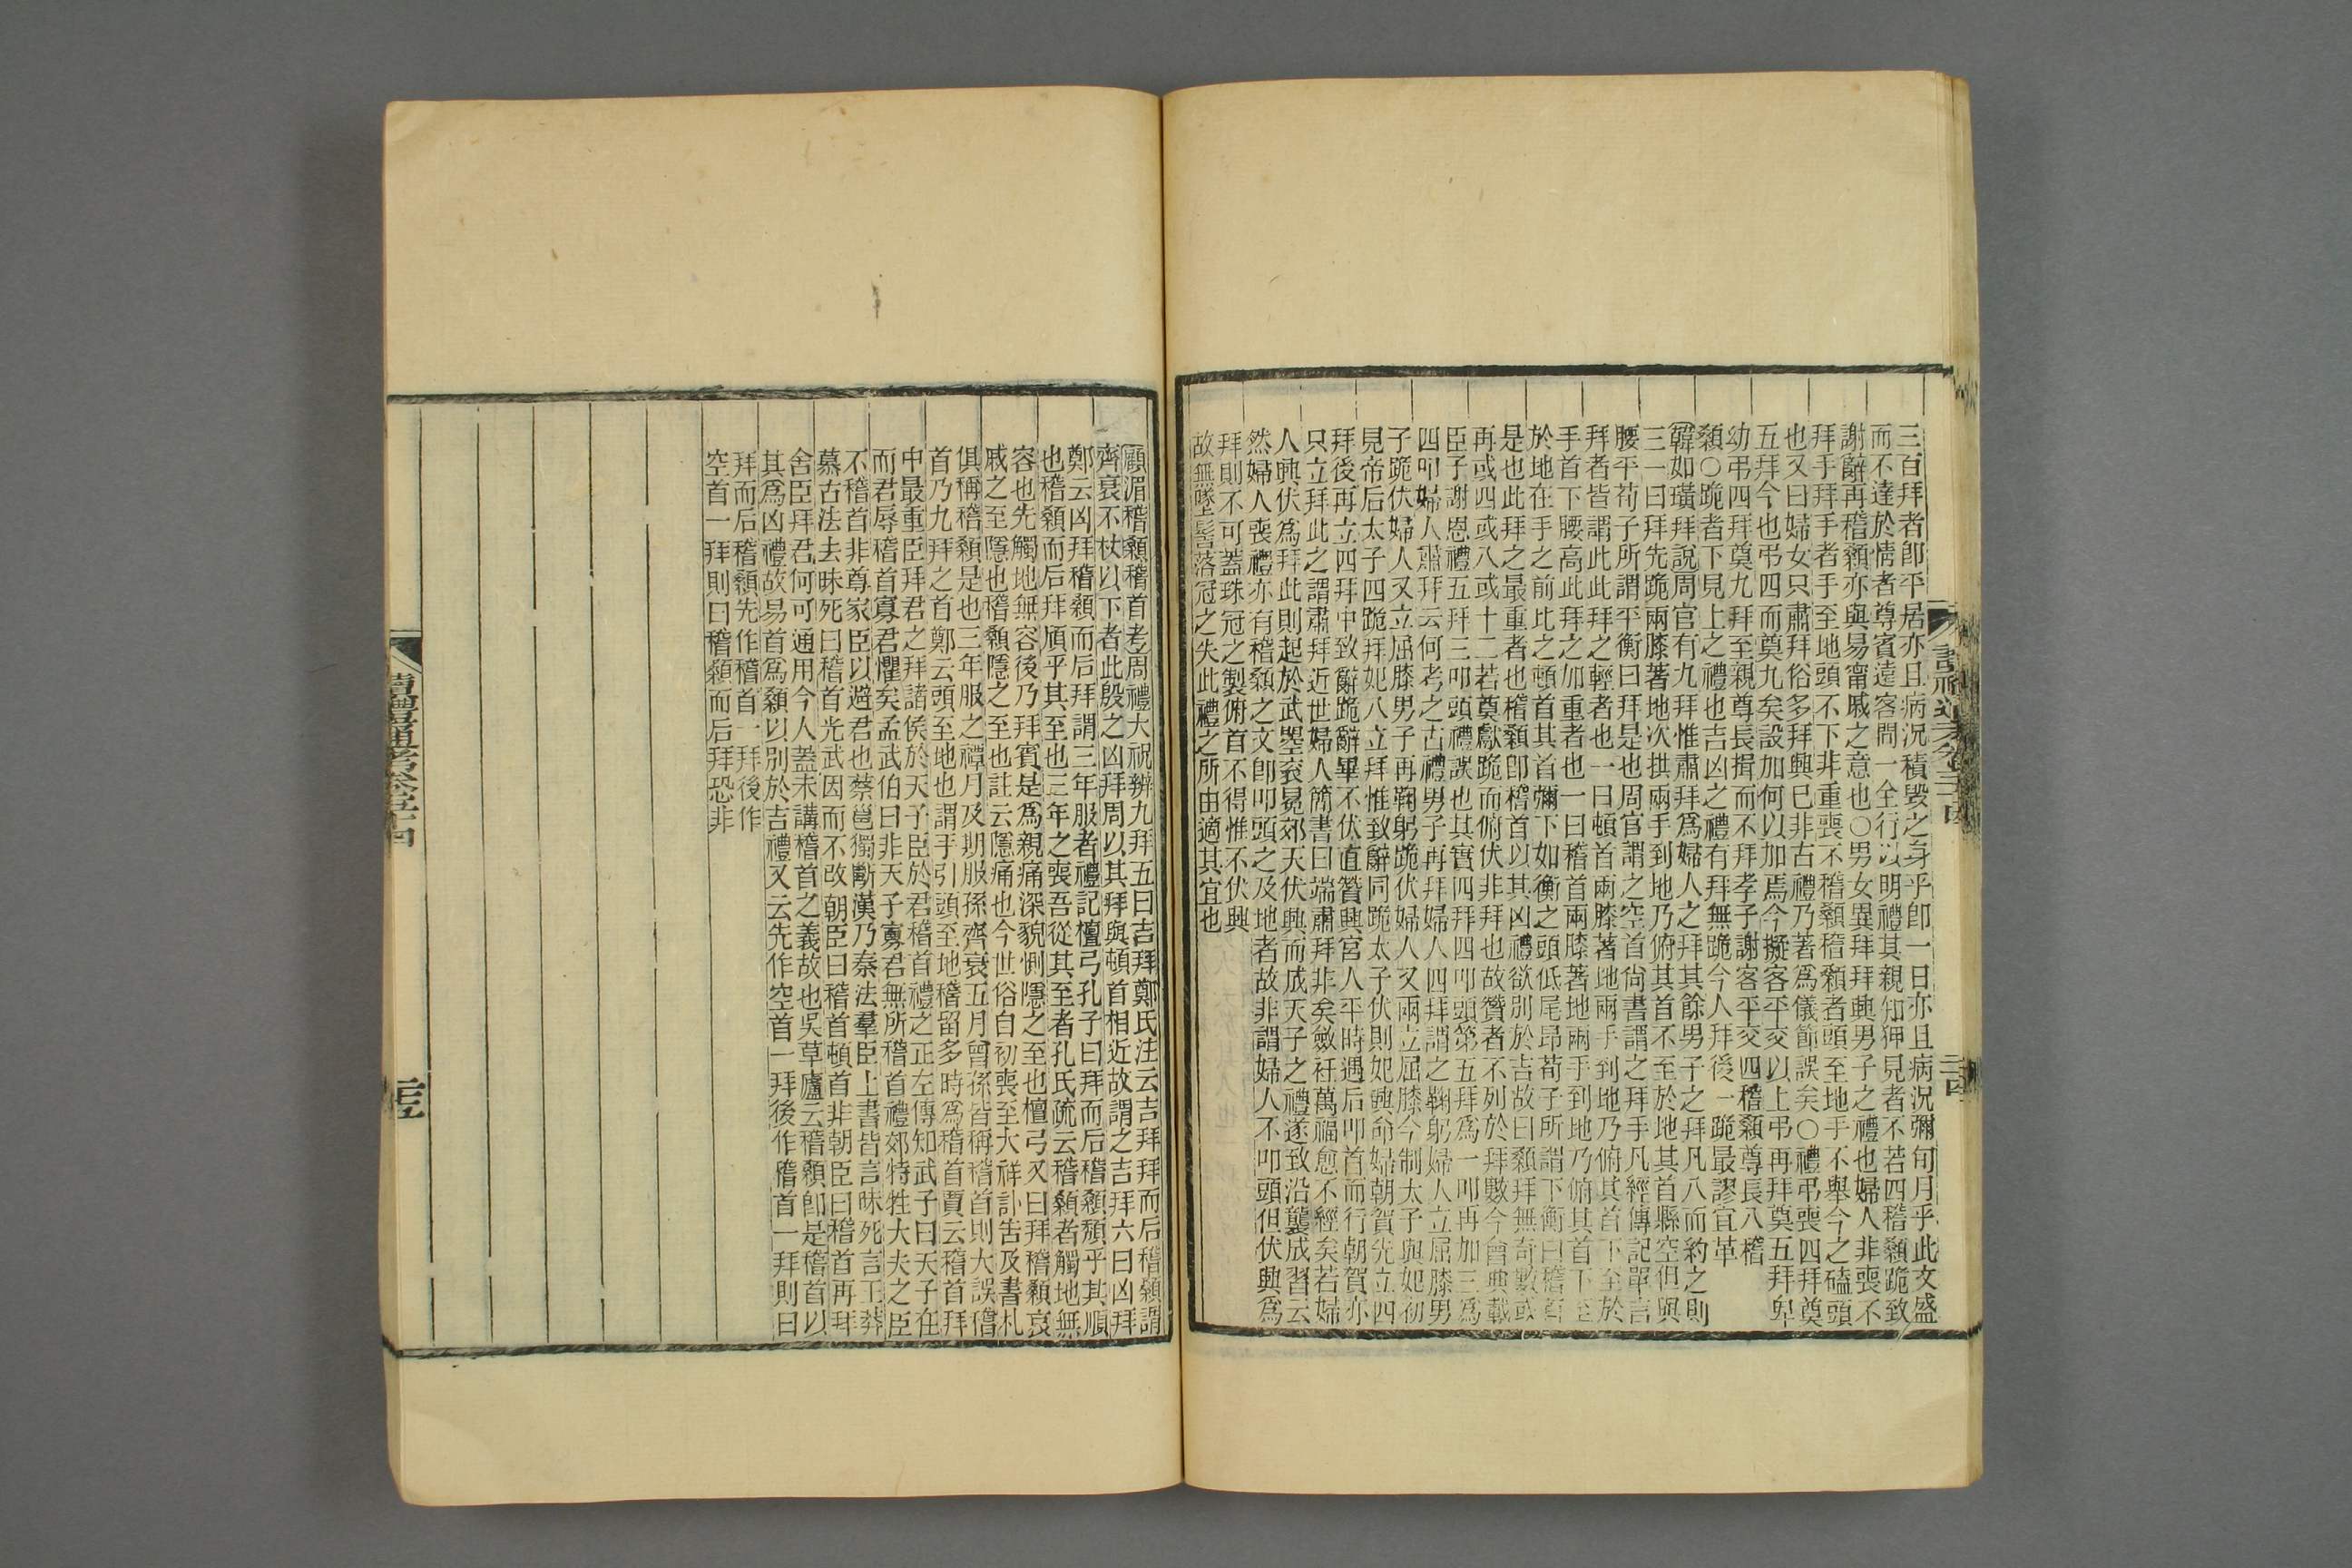 三百拜者卽平居亦且病況積毀之身乎卽一日亦且病況彌旬月乎此文盛
而不達於情者尊賓遠客問一全行以明禮其親知狎見者不若四稽顙跪致
謝辭再稽顙亦與易甯戚之意也○男女異拜拜興男子之禮也婦人非喪不
拜手拜手者手至地頭不下非重喪不稽顙稽顙者頭至地手不舉今之磕頭
也又曰婦女只肅拜俗多拜興巳非古禮乃著爲儀節誤矣○禮弔喪四拜奠
五拜今也弔四而奠九矣設加何以加焉今擬客平交以上弔再拜奠五拜卑
幼弔四拜奠九拜至親尊長揖而不拜孝子謝客平交四稽顙尊長八稽
顙○跪者下見上之禮也吉凶之禮有拜無跪今人拜後一跪最謬宜革
韓如璜拜說周官有九拜惟肅拜爲婦人之拜其餘男子之拜凡八而約之則
三一曰拜先跪兩膝著地次拱兩手到地乃俯其首不至於地其首縣空但與
腰平荀子所謂平衡曰拜是也周官謂之空首尙書謂之拜手凡經傳記單言
拜者皆謂此此拜之輕者也一曰頓首兩膝著地兩手到地乃俯其首下至於
手首下腰高此拜之加重者也一曰稽首兩膝著地兩手到地乃俯其首下至
於地在手之前比之頓首其首彌下如衡之頭低尾昂荀子所謂下衡曰稽首
是也此拜之最重者也稽顙卽稽首以其凶禮欲別於吉故曰顙拜無奇數或
再或四或八或十二若奠獻跪而俯伏非拜也故贊者不列於拜數今會典載
臣子謝恩禮五拜三叩頭禮誤也其實四拜四叩頭第五拜爲一叩再加三爲
四叩婦人肅拜云何考之古禮男子再拜婦人四拜謂之鞠躬婦人立屈膝男
子跪伏婦人又立屈膝男子再鞠躬跪伏婦人又兩立屈膝今制太子與妃初
見帝后太子四跪拜妃八立拜惟致辭同跪太子伏則妃興命婦朝賀先立四
拜後再立四拜中致辭跪辭畢不伏直贊興宮人平時遇后叩首而行朝賀亦
只立拜此之謂肅拜近世婦人簡書曰端肅拜非矣斂衽萬福愈不經矣若婦
人興伏爲拜此則起於武曌袞冕郊天伏興而成天子之禮遂致沿襲成習云
然婦人喪禮亦有稽顙之文卽叩頭之及地者故非謂婦人不叩頭但伏興爲
拜則不可蓋珠冠之製俯首不得惟不伏興
故無墜髻落冠之失此禮之所由適其宜也
顧湄稽顙稽首考周禮大祝辨九拜五曰吉拜鄭氏注云吉拜拜而后稽顙謂
齊衰不杖以下者此殷之凶拜周以其拜與頓首相近故謂之吉拜六曰凶拜
鄭云凶拜稽顙而后拜謂三年服者禮記檀弓孔子曰拜而后稽顙頹乎其順
也稽顙而后拜頎乎其至也三年之喪吾從其至者孔氏疏云稽顙者觸地無
容也先觸地無容後乃拜賓是爲親痛深貌惻隱之至也檀弓又曰拜稽顙哀
戚之至隱也稽顙隱之至也註云隱痛也今世俗自初喪至大祥訃吿及書札
俱稱稽顙是也三年服之禫月及期服孫齊衰五月曾孫皆稱稽首則大誤稽
首乃九拜之首鄭云頭至地也謂手引頭至地稽留多時爲稽首賈云稽首拜
中最重臣拜君之拜諸侯於天子臣於君稽首禮之正左傳知武子曰天子在
而君辱稽首寡君懼矣孟武伯曰非天子寡君無所稽首禮郊特牲大夫之臣
不稽首非尊家臣以避君也蔡邕獨斷漢乃秦法羣臣上書皆言昧死言王莽
慕古法去昧死曰稽首光武因而不改朝臣曰稽首頓首非朝臣曰稽首再拜
舍臣拜君何可通用今人蓋未講稽首之義故也吳草廬云稽顙卽是稽首以
其爲凶禮故易首爲顙以別於吉禮又云先作空首一拜後作稽首一拜則曰
拜而后稽顙先作稽首一拜後作
空首一拜則曰稽顙而后拜恐非